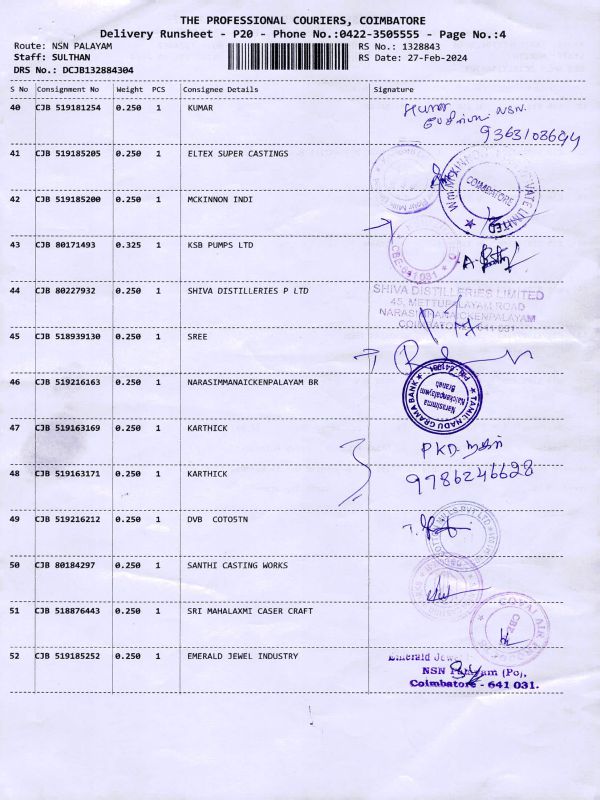 THE PROFESSIONAL COURIERS, COIMBATORE
Delivery Runsheet - P20 - Phone No.:0422-3505555 - Page No.:4
Route: NSN PALAYAM RS No.: 1328843
Staff: SULTHAN RS Date: 27-Feb-2024
DRS No.: DCJB132884304
S No Consignment No Weight PCS Consignee Details Signature
40 CJB 519181254 0.250 1 KUMAR
NSN.
41 CJB 519185205 0.250 1 ELTEX SUPER CASTINGS
COIMBATORE
42 CJB 519185200 0.250 1 MCKINNON INDI
43 CJB 80171493 0.325 1 KSB PUMPS LTD
44 CJB 80227932 0.250 1 SHIVA DISTILLERIES P LTD
SHIVA DISTILLERIES LIMITED
45, METTUPALAYAM ROAD
NARASIMHANAICKENPALAYAM
COIMBATORE - 641 031
45 CJB 518939130 0.250 1 SREE
46 CJB 519216163 0.250 1 NARASIMMANAICKENPALAYAM BR
TAMILNADU GRAMA BANK
Narasimma
Naickenpalayam
Branch
47 CJB 519163169 0.250 1 KARTHICK
PKD
48 CJB 519163171 0.250 1 KARTHICK
9786246628
49 CJB 519216212 0.250 1 DVB COTO5TN
50 CJB 80184297 0.250 1 SANTHI CASTING WORKS
51 CJB 518876443 0.250 1 SRI MAHALAXMI CASER CRAFT
52 CJB 519185252 0.250 1 EMERALD JEWEL INDUSTRY
Emerald Jewel
NSN Palayam (Po),
Coimbatore - 641 031.